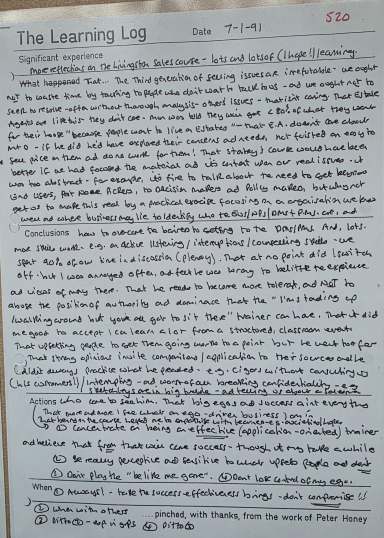 520
The Learning Log Date 7-1-91
Significant experience
more reflections on the Livingston Sales course - lots and lots of (I hope!) learning.
What happened That... The Third generation of selling issues are irrefutable - we ought
not to waste time by talking to people who don't want to talk to us - and we ought not to
seek to resolve - often without thorough analysis - others issues - that isn't caring. That Estate
Agents are like this they don't care - man was told they won't get £80% of what they want
for their house "because people want to live on Estates" - that E.A. doesn't care about
- if he did he'd have explored their concerns and needs, not foisted an easy to
sell price on them and done work for them! That Strategy course would have been
better if we had focused the material and its content upon our real issues. it
was too abstract. for example, its fine to talk about the need to get beyond
end users, to Decision makers and Policy makers, but why not
get us to make this real by a practical exercise focusing on an organisation we know
and where business may lie to identify who the
Conclusions how to overcome barriers to getting to the DMs/PMs. And, lots
more skills work - e.g. on active listening / interruptions / counselling skills - we
spent 90% of our time in discussion (plenary). That at no point did I switch
off - but I was annoyed often, and felt he was wrong to belittle the experience
and views of many there. That he needs to become more tolerant, and NOT to
abuse the position of authority and dominance that the "I'm standing up
/walking around but you've all got to sit there" trainer can have. That it did
me good to accept I can learn a lot from a structured, classroom event.
That upsetting people to get them going works to a point but he went too far
That strong opinions invite comparisons / application to their sources and he
didn't always practice what he preached - e.g. cigars without consulting us
(his customers!) / interrupting - and worst of all breaking confidentiality - e.g.
Actions who come to see him. That big egos and success aint everything
That more and more I see what an ego-driven business I am in
① Concentrate on being an effective (application-oriented) trainer
and believe that from that will come success - though it may take a while
② Be really perceptive and sensitive to what upsets people and don't
③ Don't play the "be like me game". ④ Dont lose control of my ego.
When ① Always! - take the success effectiveness brings - don't compromise!!
② When with others .... pinched, with thanks, from the work of Peter Honey
③ Ditto ② - esp in gps ④ Ditto ③